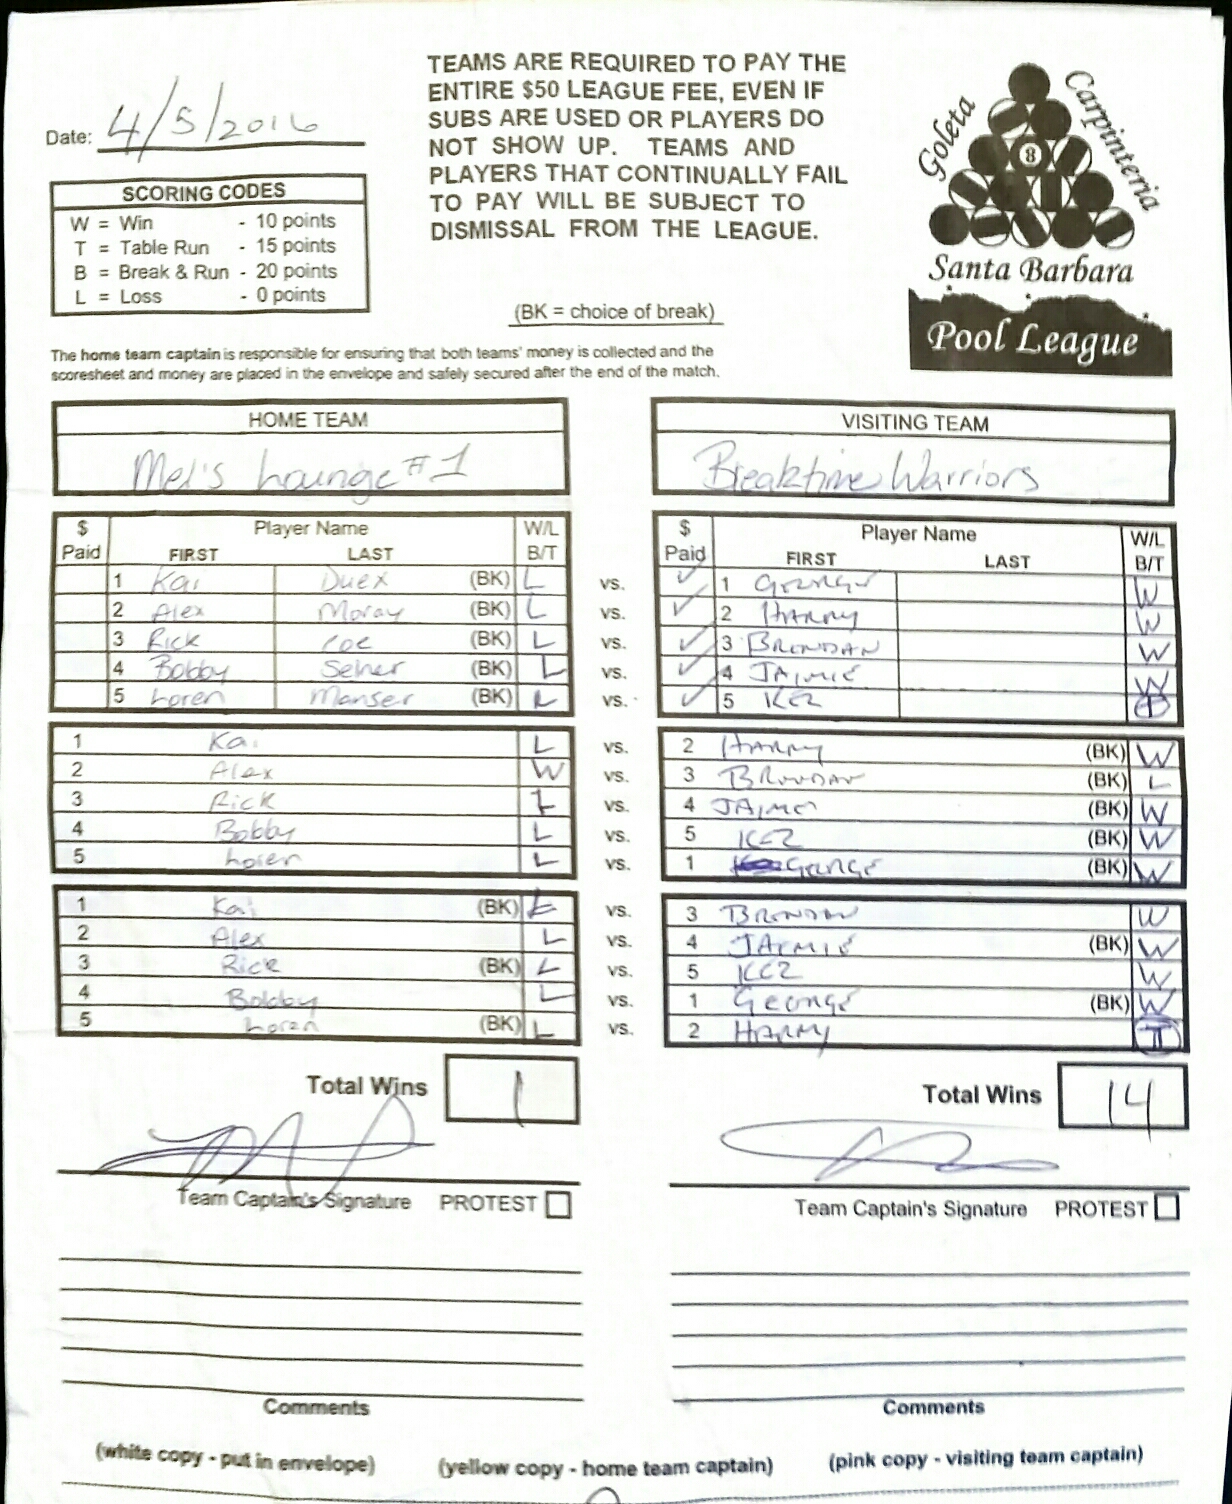 TEAMS ARE REQUIRED TO PAY THE
ENTIRE $50 LEAGUE FEE, EVEN IF
SUBS ARE USED OR PLAYERS DO
NOT SHOW UP. TEAMS AND
PLAYERS THAT CONTINUALLY FAIL
TO PAY WILL BE SUBJECT TO
DISMISSAL FROM THE LEAGUE.
Date: 4/5/2016
SCORING CODES
W = Win - 10 points
T = Table Run - 15 points
B = Break & Run - 20 points
L = Loss - 0 points
(BK = choice of break)
Goleta
Carpinteria
8
Santa Barbara
Pool League
The home team captain is responsible for ensuring that both teams' money is collected and the
scoresheet and money are placed in the envelope and safely secured after the end of the match.
HOME TEAM VISITING TEAM
Mel's Lounge #1 Breaktime Warriors
$ Player Name W/L $ Player Name W/L
Paid FIRST LAST B/T Paid FIRST LAST B/T
1 Kai Duex (BK) L vs. ✓ 1 GEORGE W
2 Alex Moray (BK) L vs. ✓ 2 HARRY W
3 Rick (BK) L vs. ✓ 3 BRENDAN W
4 Bobby Selner (BK) L vs. ✓ 4 JAIMIE W
5 Loren Manser (BK) L vs. ✓ 5 KEZ
1 Kai L vs. 2 HARRY (BK) W
2 Alex W vs. 3 BRENDAN (BK) L
3 Rick L vs. 4 JAIME (BK) W
4 Bobby L vs. 5 KEZ (BK) W
5 Loren L vs. 1 GEORGE (BK) W
1 Kai (BK) L vs. 3 BRENDAN W
2 Alex L vs. 4 JAIMIE (BK) W
3 Rick (BK) L vs. 5 KEZ W
4 Bobby L vs. 1 GEORGE (BK) W
5 Loren (BK) L vs. 2 HARRY T
Total Wins 1 Total Wins 14
Team Captain's Signature PROTEST Team Captain's Signature PROTEST
Comments Comments
(white copy - put in envelope) (yellow copy - home team captain) (pink copy - visiting team captain)